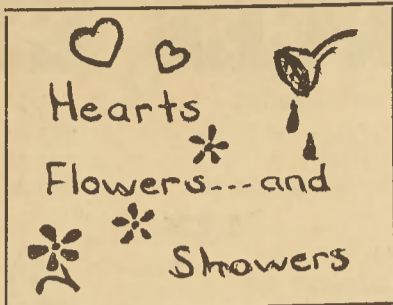 Hearts
Flowers---and
Showers